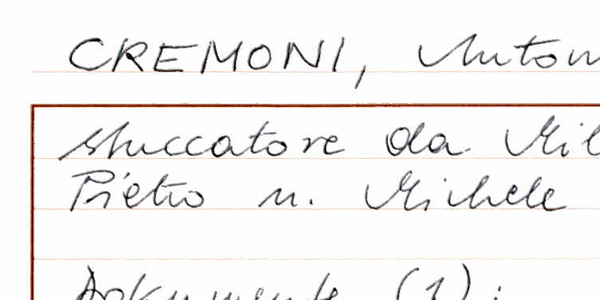 CREMONI, Anton
stuccatore da Mil
Pietro n. Michele
Dokumente (1):